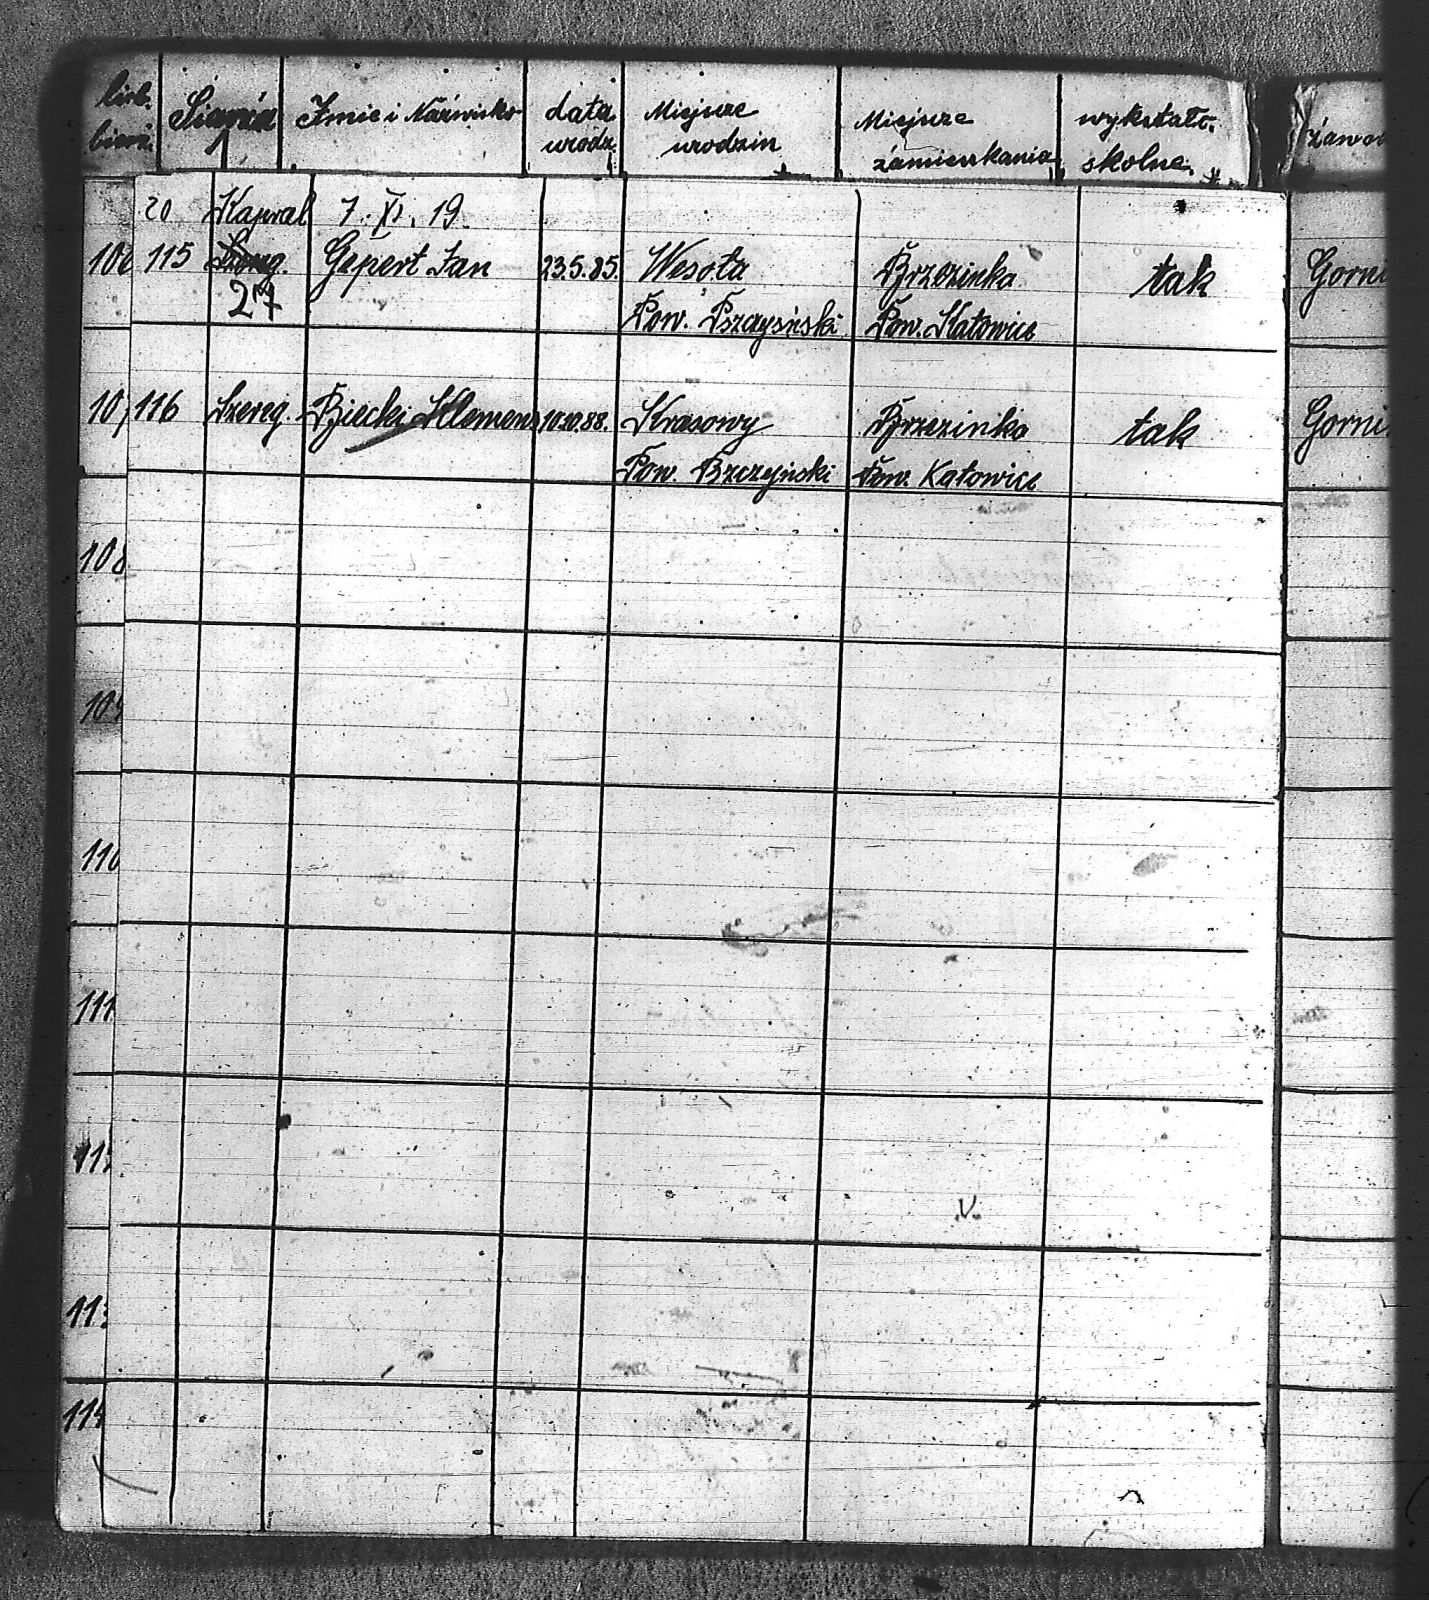 licb. Szarża Imie i Naźwisko data Miejsze Miejsze wykształc. zawod
bierz. urodz. urodzin zamieszkania skolne
20 Kapral 7. XI. 19.
106 115 Szereg. Gepert Jan 23.5.85. Wesoła Brzezinka tak Gorni
27 Pow. Pszczyński Pow. Katowice
107 116 Szereg. Bjecki Klemens 10.10.88. Krasowy Brzezinka tak Gorni
Pow. Bszczyński Pow. Katowice
108
109
110
111
112
113
114